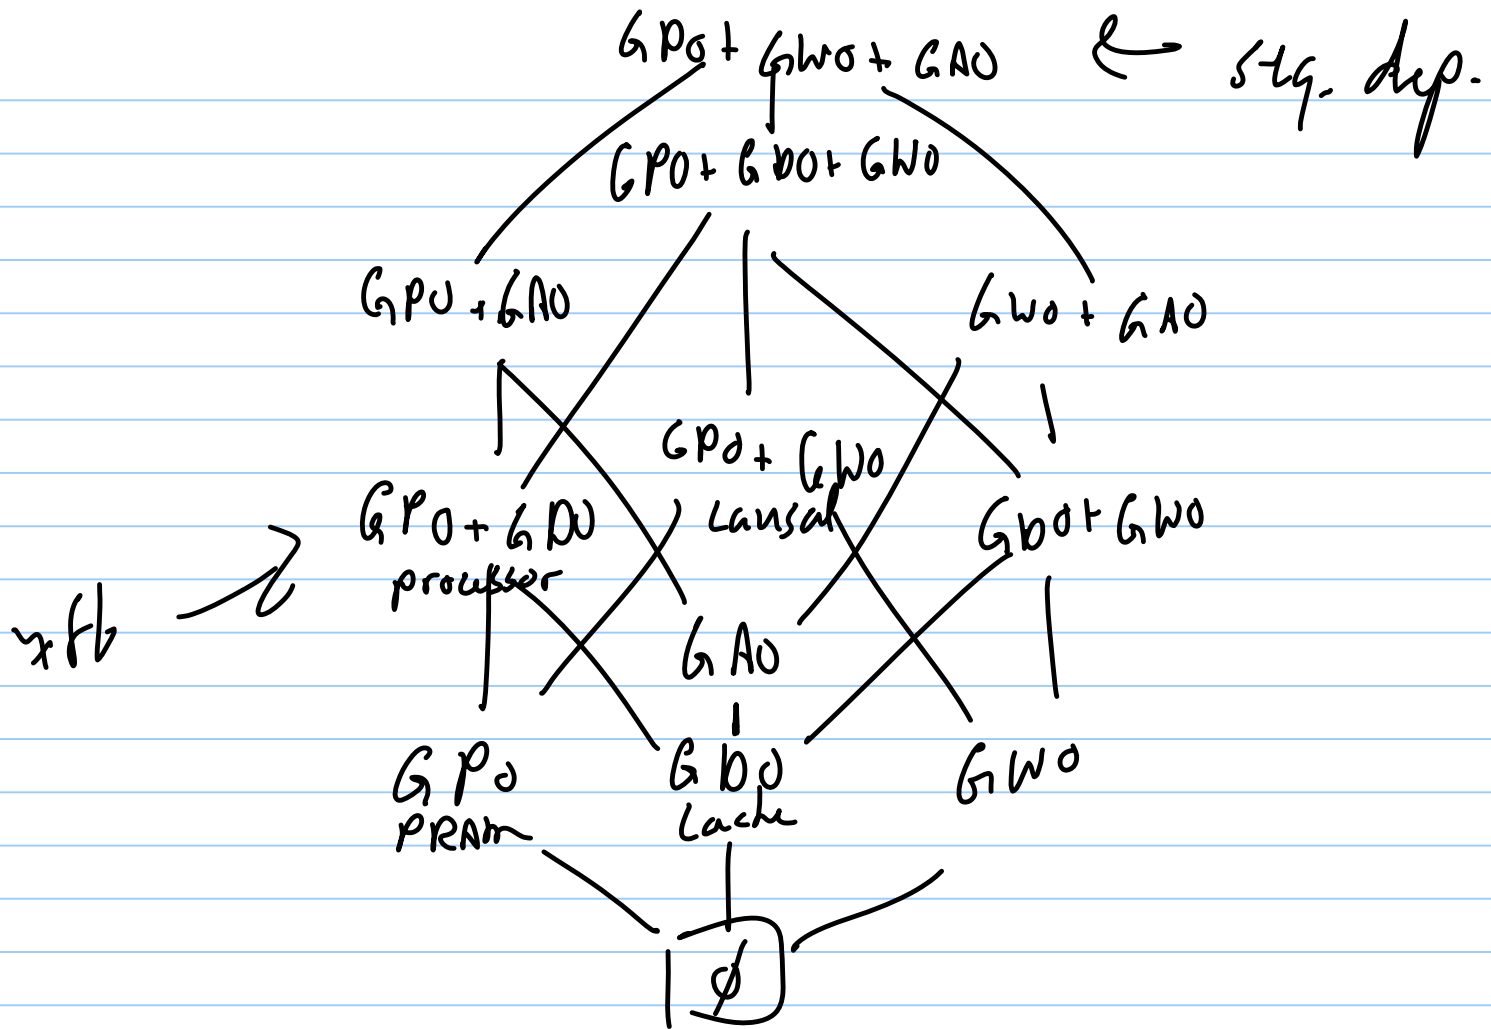 GPO + GWO + GAO
GPO + GDO + GWO
GPO + GAO
GWO + GAO
GPO + GWO
causal
GPO + GDO
processor
GDO + GWO
GAO
GPO
PRAM
GDO
cache
GWO
ø